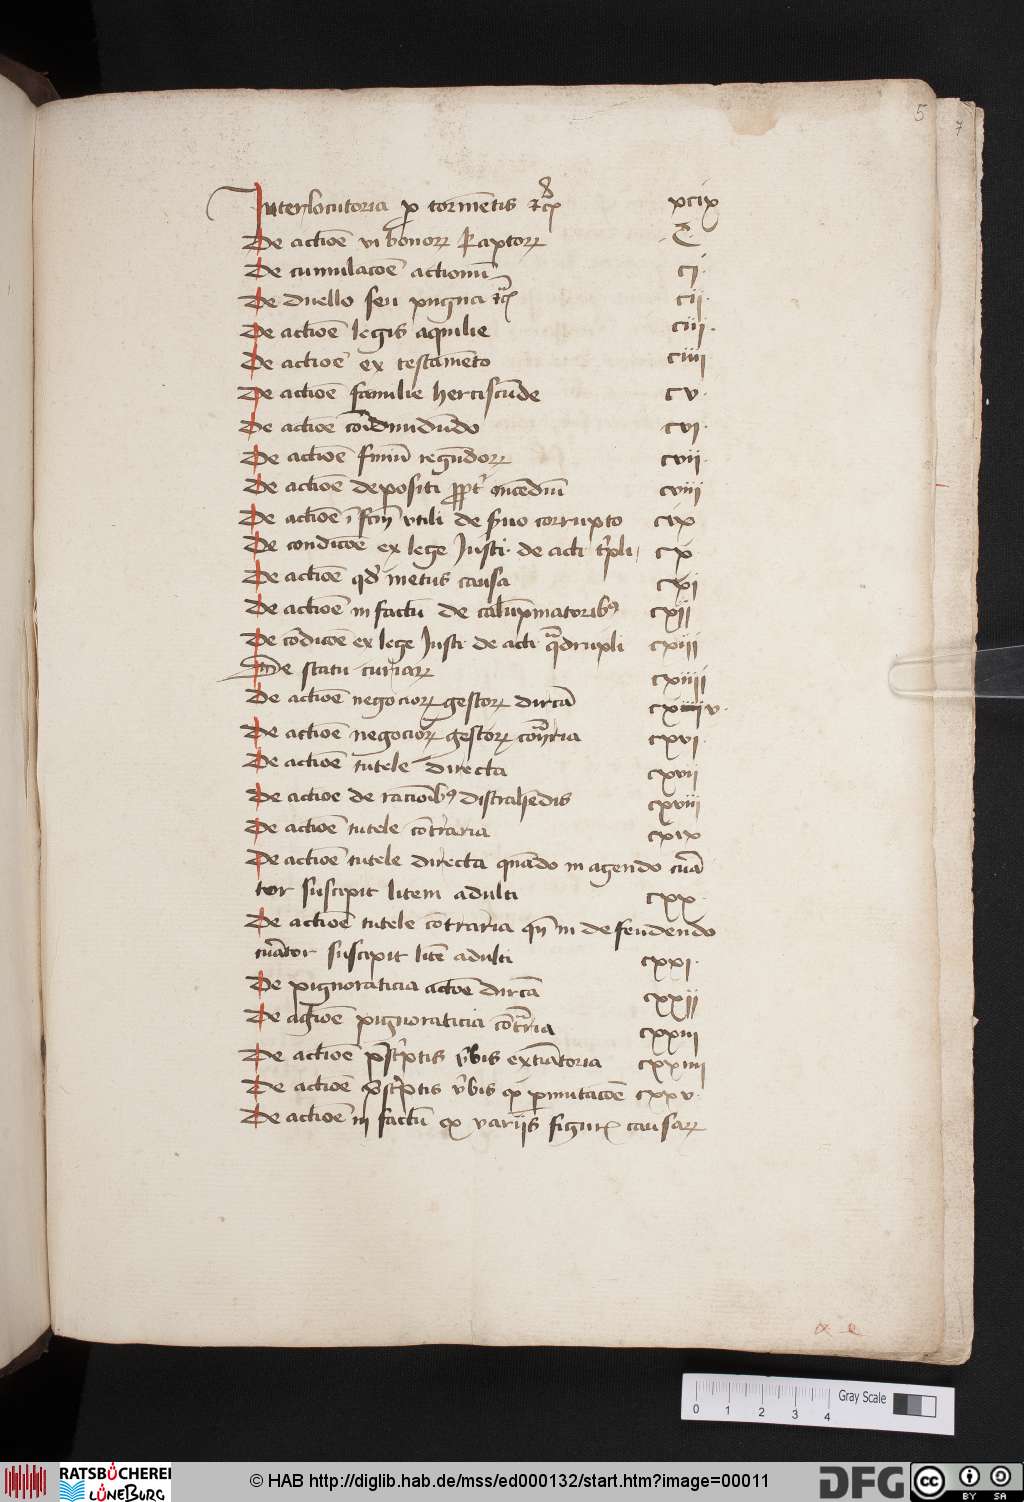 5
7
Interlocutoria p tormētis xcix
De actiōe vi bonorꝝ Raptorꝝ C
De cumulacōe actionū cj
De duello seu pugna cij
De actiōe legis aquilie ciij
De actiōe ex testamēto ciiij
De actiōe familie herciscūde cv
De actiōe cōi diuidūdo cvi
De actiōe finiū regūdorꝝ cvij
De actiōe depositi ꝓpt' incēdiū cviij
De actiōe ī fcm̄ vtili de s̄uo corrupto cix
De condicōe ex lege Justi de acti t'pli cx
De actiōe qd' metus causa cxi
De actiōe in factū de calūpniatorib⁹ cxij
De cōdicōe ex lege Justi de acti qͣdrupli cxiij
De statu curiarꝝ cxiiij
De actiōe negociorꝝ gestorꝝ dircā cxv
De actiōe negociorꝝ gestorꝝ cōtͣria cxvi
De actiōe tutele directa cxvij
De actioe de raciōib⁹ distrahēdis cxviij
De actiōe tutele cōtraria cxix
De actiōe tutele directa quādo in agendo cura
tor suscipit litem adulti cxx
De actiōe tutele cōtraria qn̄ in defendendo
curator suscipit litē adulti cxxi
De pignoraticia actōe dircā cxxij
De actiōe pignoraticia cōtͣria cxxiij
De actiōe p̄sc'ptis v'bis extiātoria cxxiiij
De actiōe p̄sc'ptis v'bis ex p̱mutacōe cxxv
De actiōe in factū ex varijs figurꝭ causarꝝ
0 1 2 3 4 Gray Scale
RATSBÜCHEREI LÜNEBURG
© HAB http://diglib.hab.de/mss/ed000132/start.htm?image=00011
DFG
cc BY SA